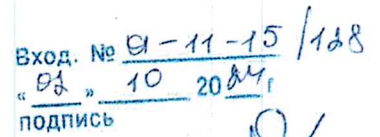 Вход. № 01-11-15/128
« 02 » 10 2024 г
подпись